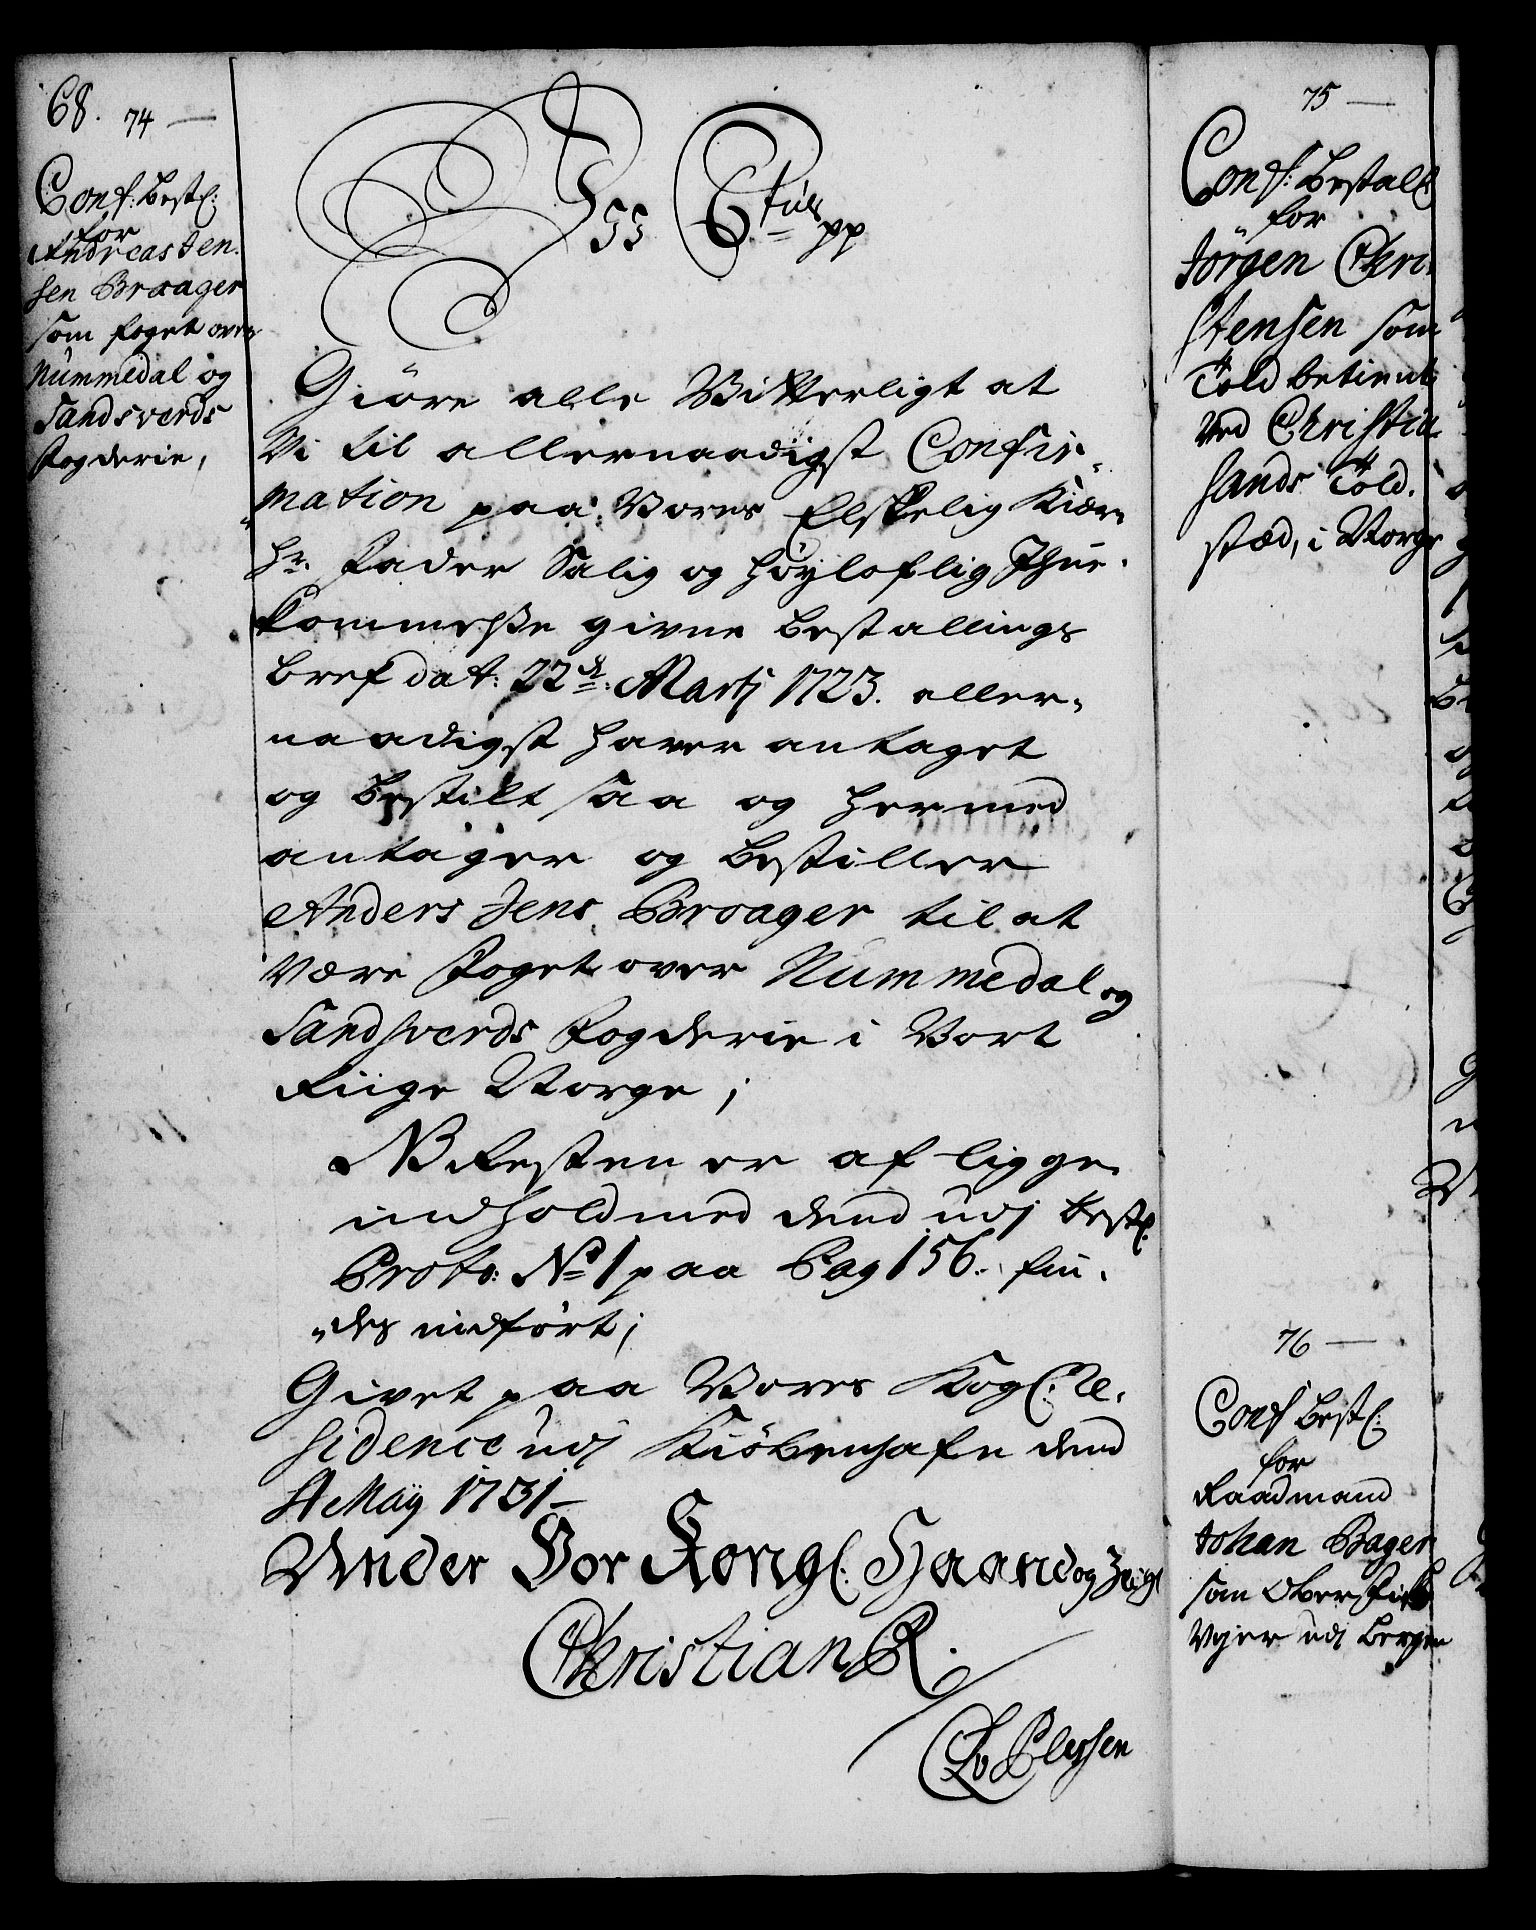 68. 74 —
Conf: Bestl:
for
Andreas Jen-
sen Broager
som foget over
Nummedal og
Sandsverds
fogderie,
C6tus pp
Giöre alle Vitterligt at
Vi til allernaadigst Confir-
mation paa Vores Elskelig Kiær-
Hr. Fader Salig og Höyloflig Ihue-
kommelse givne bestallings
bref dat: 22de Martj 1723. aller-
naadigst haver antaget
og bestilt saa og hermed
antager og bestiller
Anders Jens. Broager til at
være foget over Nummedal og
Sandsverds fogderie i Vort
Riige Norge;
NB Resten er af lige
indhold med dend udj bestl:
Proto: No 1 paa Pag 156. fin-
des indfört;
Givet paa Vores Kogl: Re-
sidence udj Kiöbenhafn dend
May 1731 —
Under Vor Kongl: Haand og Zeigl
Christian R.
Plessen
75 —
Conf: Bestall
for
Jörgen Chri
stensen som
Told betient
ved Christia
sands Told-
stæd, i Norge
76 —
Conf Bestl:
for
Raadmand
Johan Bager
som Ober
Vejer udj Bergen